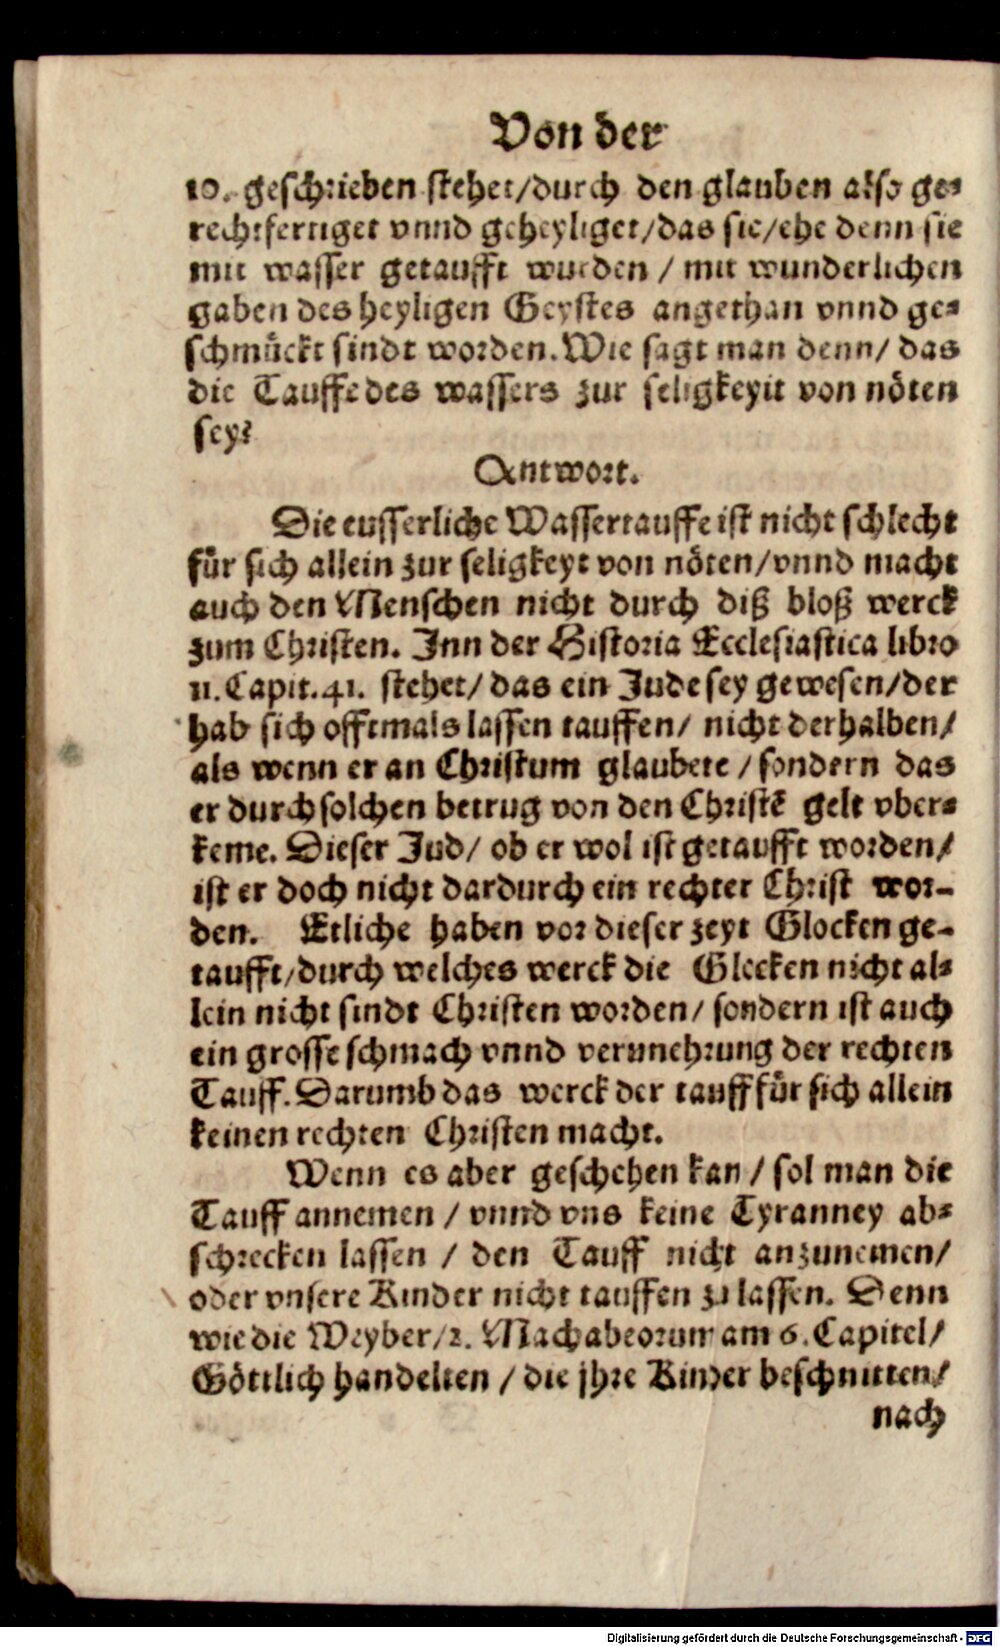 Von der
10. geschrieben stehet/durch den glauben also ge-
rechtfertiget vnnd geheyliget/das sie/ehe denn sie
mit wasser getaufft wurden / mit wunderlichen
gaben des heyligen Geystes angethan vnnd ge-
schmückt sindt worden. Wie sagt man denn/ das
die Tauffe des wassers zur seligkeyit von nöten
sey?
Antwort.
Die eusserliche Wassertauffe ist nicht schlecht
für sich allein zur seligkeyt von nöten/vnnd macht
auch den Menschen nicht durch diß bloß werck
zum Christen. Inn der Historia Ecclesiastica libro
11. Capit. 41. stehet/ das ein Jude sey gewesen/der
hab sich offtmals lassen tauffen/ nicht derhalben/
als wenn er an Christum glaubete / sondern das
er durch solchen betrug von den Christē gelt vber-
keme. Dieser Jud/ ob er wol ist getaufft worden/
ist er doch nicht dardurch ein rechter Christ wor-
den. Etliche haben vor dieser zeyt Glocken ge-
taufft/durch welches werck die Glocken nicht al-
lein nicht sindt Christen worden/ sondern ist auch
ein grosse schmach vnnd verunehrung der rechten
Tauff. Darumb das werck der tauff für sich allein
keinen rechten Christen macht.
Wenn es aber geschehen kan / sol man die
Tauff annemen / vnnd vns keine Tyranney ab-
schrecken lassen / den Tauff nicht anzunemen/
oder vnsere Kinder nicht tauffen zu lassen. Denn
wie die Weyber/2. Machabeorum am 6. Capitel/
Göttlich handelten / die jhre Kinder beschnitten/
nach
Digitalisierung gefördert durch die Deutsche Forschungsgemeinschaft - DFG